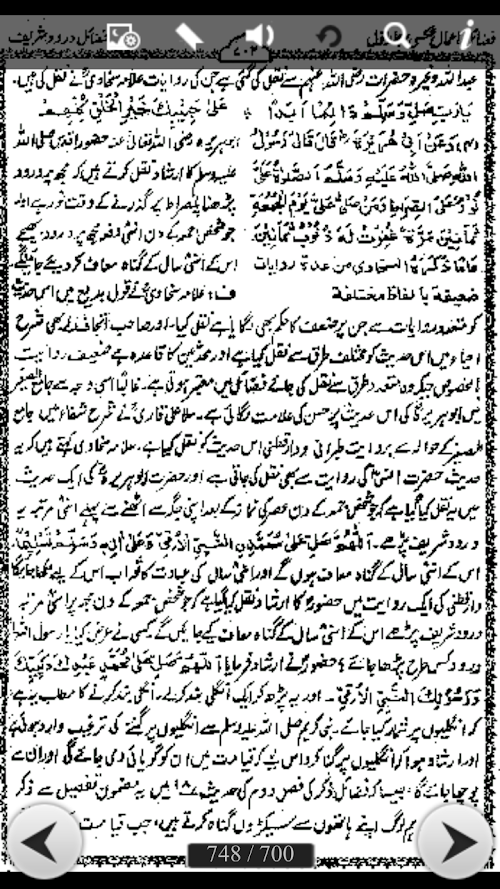 فضائل درود شریف
۷۰۳
عبداللہ وغیرہ حضرات رضی اللہ عنہم سے نقل کی گئی ہے جن کی روایات علامہ سخاوی نے نقل کی ہیں۔
یَارَبِّ صَلِّ وَسَلِّمْ دَائِمًا اَبَدًا
عَلٰی حَبِیْبِكَ خَیْرِ الْخَلْقِ كُلِّهِمْ
وَعَنْ اَبِیْ هُرَیْرَةَ قَالَ قَالَ رَسُوْلُ
اللّٰهِ صَلَّی اللّٰهُ عَلَیْهِ وَسَلَّمَ اَلصَّلٰوةُ عَلَیَّ
نُوْرٌ عَلَی الصِّرَاطِ وَمَنْ صَلّٰی عَلَیَّ یَوْمَ الْجُمُعَةِ
ثَمَانِیْنَ مَرَّةً غُفِرَتْ لَهٗ ذُنُوْبُ ثَمَانِیْنَ
عَامًا ذكره السخاوی من عدة روایات
ضعیفة بالفاظ مختلفة
ابوہریرہ رضی اللہ تعالیٰ عنہ حضور اقدس صلی اللہ
علیہ وسلم کا ارشاد نقل کرتے ہیں کہ مجھ پر درود
پڑھنا پل صراط پر گذرنے کے وقت نور ہے اور
جو شخص جمعہ کے دن اسّی دفعہ مجھ پر درود بھیجے
اس کے اسّی سال کے گناہ معاف کر دیئے جائیں گے۔
ف: علامہ سخاوی نے قول بدیع میں اس حدیث
کو متعدد روایات سے جن پر ضعف کا حکم بھی لگایا ہے نقل کیا۔ اور صاحب اتحاف نے بھی شرح
احیاء میں اس حدیث کو مختلف طرق سے نقل کیا ہے اور محدثین کا قاعدہ ہے ضعیف روایت
بالخصوص جبکہ وہ متعدد طرق سے نقل کی جائے فضائل میں معتبر ہوتی ہے۔ غالباً اسی وجہ سے جامع الصغیر
میں ابوہریرہ کی اس حدیث پر حسن کی علامت لگائی ہے۔ ملا علی قاری نے شرح شفاء میں جامع
صغیر کے حوالے سے بروایت طبرانی و دارقطنی اس حدیث کو نقل کیا ہے۔ علامہ سخاوی کہتے ہیں کہ یہ
حدیث حضرت انس کی روایت سے بھی نقل کی جاتی ہے اور حضرت ابوہریرہ کی ایک حدیث
میں یہ نقل کیا گیا ہے کہ جو شخص جمعہ کے دن عصر کی نماز کے بعد اپنی جگہ سے اٹھنے سے پہلے اسّی مرتبہ یہ
درود شریف پڑھے۔ اَللّٰهُمَّ صَلِّ عَلٰی مُحَمَّدِنِ النَّبِیِّ الْاُمِّیِّ وَعَلٰی اٰلِهٖ وَسَلِّمْ تَسْلِیْمًا
اس کے اسّی سال کے گناہ معاف ہوں گے اور اسّی سال کی عبادت کا ثواب اس کے لیے لکھا جائے گا
دارقطنی کی ایک روایت میں حضور کا ارشاد نقل کیا گیا ہے کہ جو شخص جمعہ کے دن مجھ پر اسّی مرتبہ
درود شریف پڑھے اس کے اسّی سال کے گناہ معاف کیے جائیں گے کسی نے عرض کیا یا رسول اللہ
درود کس طرح پڑھا جائے؟ حضور نے ارشاد فرمایا اَللّٰهُمَّ صَلِّ عَلٰی مُحَمَّدٍ عَبْدِكَ وَنَبِیِّكَ
وَرَسُوْلِكَ النَّبِیِّ الْاُمِّیِّ۔ اور یہ پڑھ کر ایک انگلی بند کر لے۔ انگلی بند کرنے کا مطلب یہ ہے
کہ انگلیوں پر شمار کیا جائے۔ نبی کریم صلی اللہ علیہ وسلم سے انگلیوں پر گننے کی ترغیب وارد ہوئی ہے
اور ارشاد ہوا کہ انگلیوں پر گنا کرو اس لیے کہ قیامت میں ان کو گویائی دی جائے گی اور ان سے
پوچھا جائے گا، جیسا کہ فضائل ذکر کی فصل دوم کی حدیث ۱۸ میں یہ مضمون تفصیل سے ذکر
ہم لوگ اپنے ہاتھوں سے سینکڑوں گناہ کرتے ہیں، جب قیامت
748 / 700